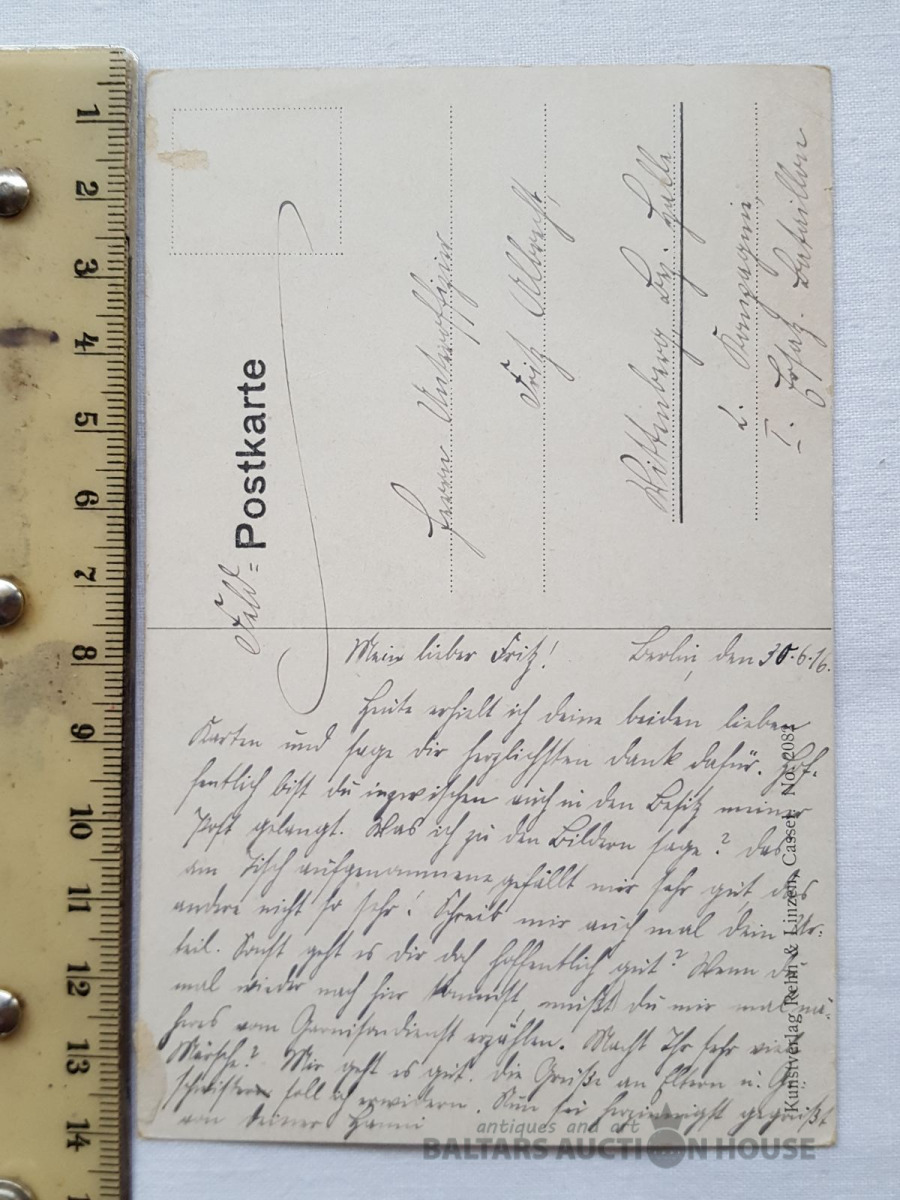 Feld=Postkarte
Herrn Unteroffizier
Fritz Albrecht,
Wittenberg, Bz. Halle
2. Kompagnie,
I. Ersatz. Bataillon
Mein lieber Fritz! Berlin, den 30.6.16.
Heute erhielt ich deine beiden lieben
Karten und sage dir herzlichsten Dank dafür. Hof-
fentlich bist du inzwischen auch in den Besitz meiner
Post gelangt. Was ich zu den Bildern sage? Das
am Tisch aufgenommene gefällt mir sehr gut, das
andere nicht so sehr! Schreib mir auch mal dein Ur-
teil. Sonst geht es dir doch hoffentlich gut? Wenn du
mal wieder nach hier kommst, mußt du mir mal nä-
heres vom Garnisondienst erzählen. Macht Ihr sehr viel
Märsche? Mir geht es gut. Die Grüße an Eltern u. Ge-
schwister soll ich erwidern. Nun sei herzinnigst gegrüßt
von deiner Hanni
Kunstverlag Rehn & Linzen, Cassel. No. 208
1
2
3
4
5
6
7
8
9
10
11
12
13
14
antiques and art
BALTARS AUCTION HOUSE